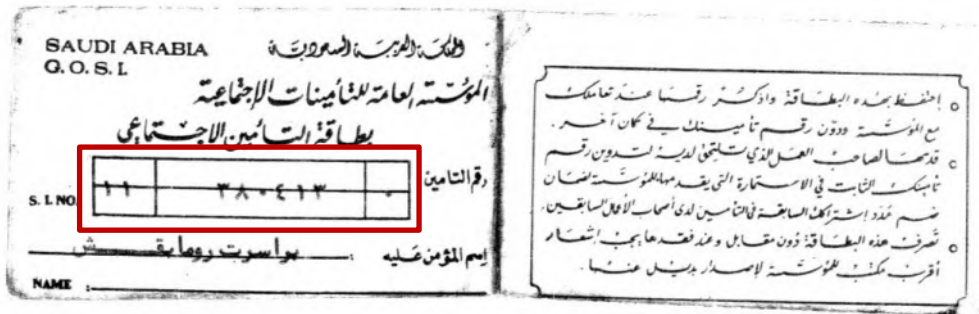 SAUDI ARABIA
المملكة العربية السعودية
G. O. S. I.
المؤسسة العامة للتأمينات الإجتماعية
بطاقة التأمين الاجتماعي
رقم التامين
١١ ٣٨٠٤١٣ ٠
S. I. NO.
إسم المؤمن عليه : بواسرت رومايقـــش
NAME :
إحتفظ بهذه البطاقة واذكر رقمها عند تعاملك
مع المؤسسة ودوّن رقم تأمينك في مكان آخر .
قدمها لصاحب العمل الذي تلتحق لديه لتدوين رقم
تأمينك الثابت في الاستمارة التي يقدمها للمؤسسة لضمان
ضم مُدَد إشتراكك السابقة في التأمين لدى أصحاب الأعمال السابقين .
تصرف هذه البطاقة دون مقابل وعند فقدها يجب إشعار
أقرب مكتب للمؤسسة لإصدار بديل عنها .